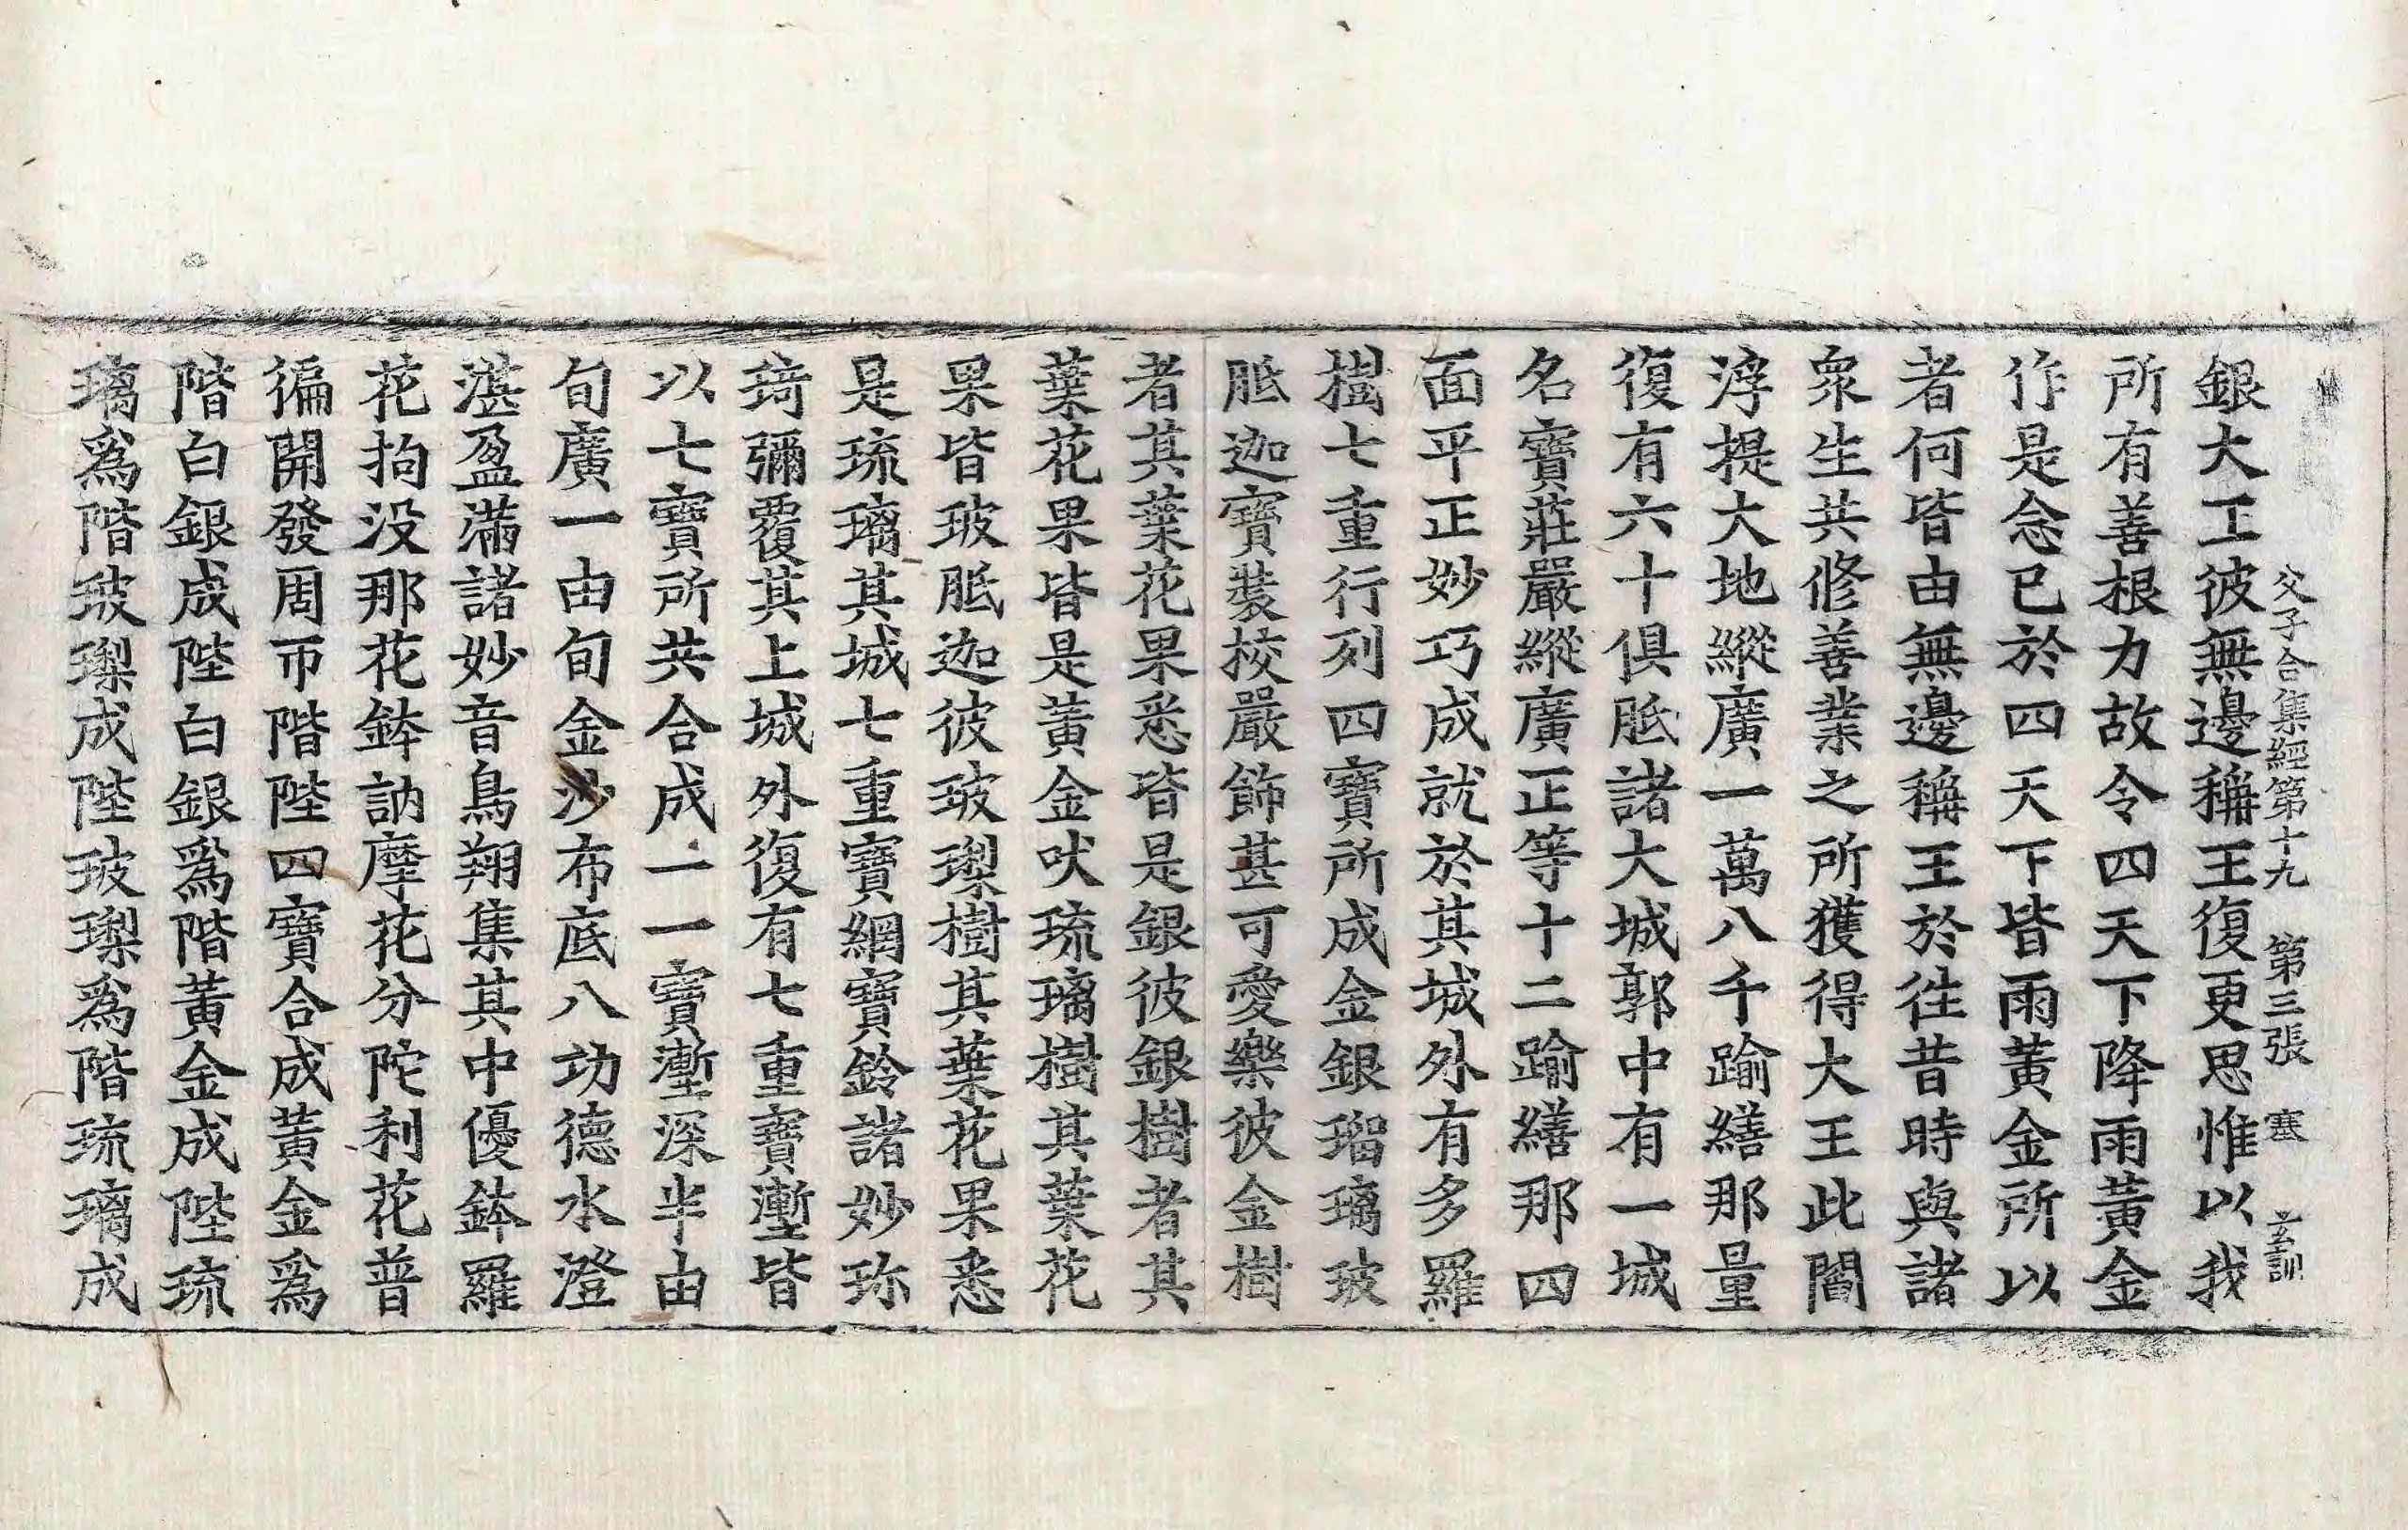 父子合集經第十九　第三張　塞　玄訓
銀大工彼無邊稱王復更思惟以我
所有善根力故令四天下降雨黃金
作是念已於四天下皆雨黃金所以
者何皆由無邊稱王於徃昔時與諸
衆生共修善業之所獲得大王此閻
浮提大地縱廣一萬八千踰繕那量
復有六十俱胝諸大城郭中有一城
名寶莊嚴縱廣正等十二踰繕那四
面平正妙巧成就於其城外有多羅
樹七重行列四寶所成金銀瑠璃玻
胝迦寶裝挍嚴飾甚可愛樂彼金樹
者其葉花果悉皆是銀彼銀樹者其
葉花果皆是黃金吠琉璃樹其葉花
果皆玻胝迦彼玻瓈樹其葉花果悉
是琉璃其城七重寶網寶鈴諸妙珎
琦彌覆其上城外復有七重寶壍皆
以七寶所共合成一一寶壍深半由
旬廣一由旬金沙布底八功德水澄
湛盈滿諸妙音鳥翔集其中優鉢羅
花拘沒那花鉢訥摩花分陀利花普
徧開發周帀階陛四寶合成黃金爲
階白銀成陛白銀爲階黃金成陛琉
璃爲階玻瓈成陛玻瓈爲階琉璃成